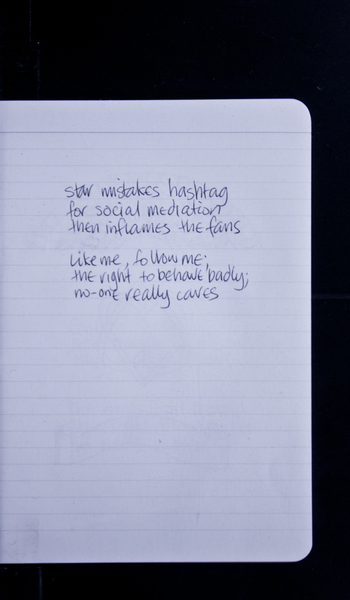 star mistakes hashtag
for social mediation
then inflames the fans
Like me, follow me;
the right to behave badly;
no-one really cares